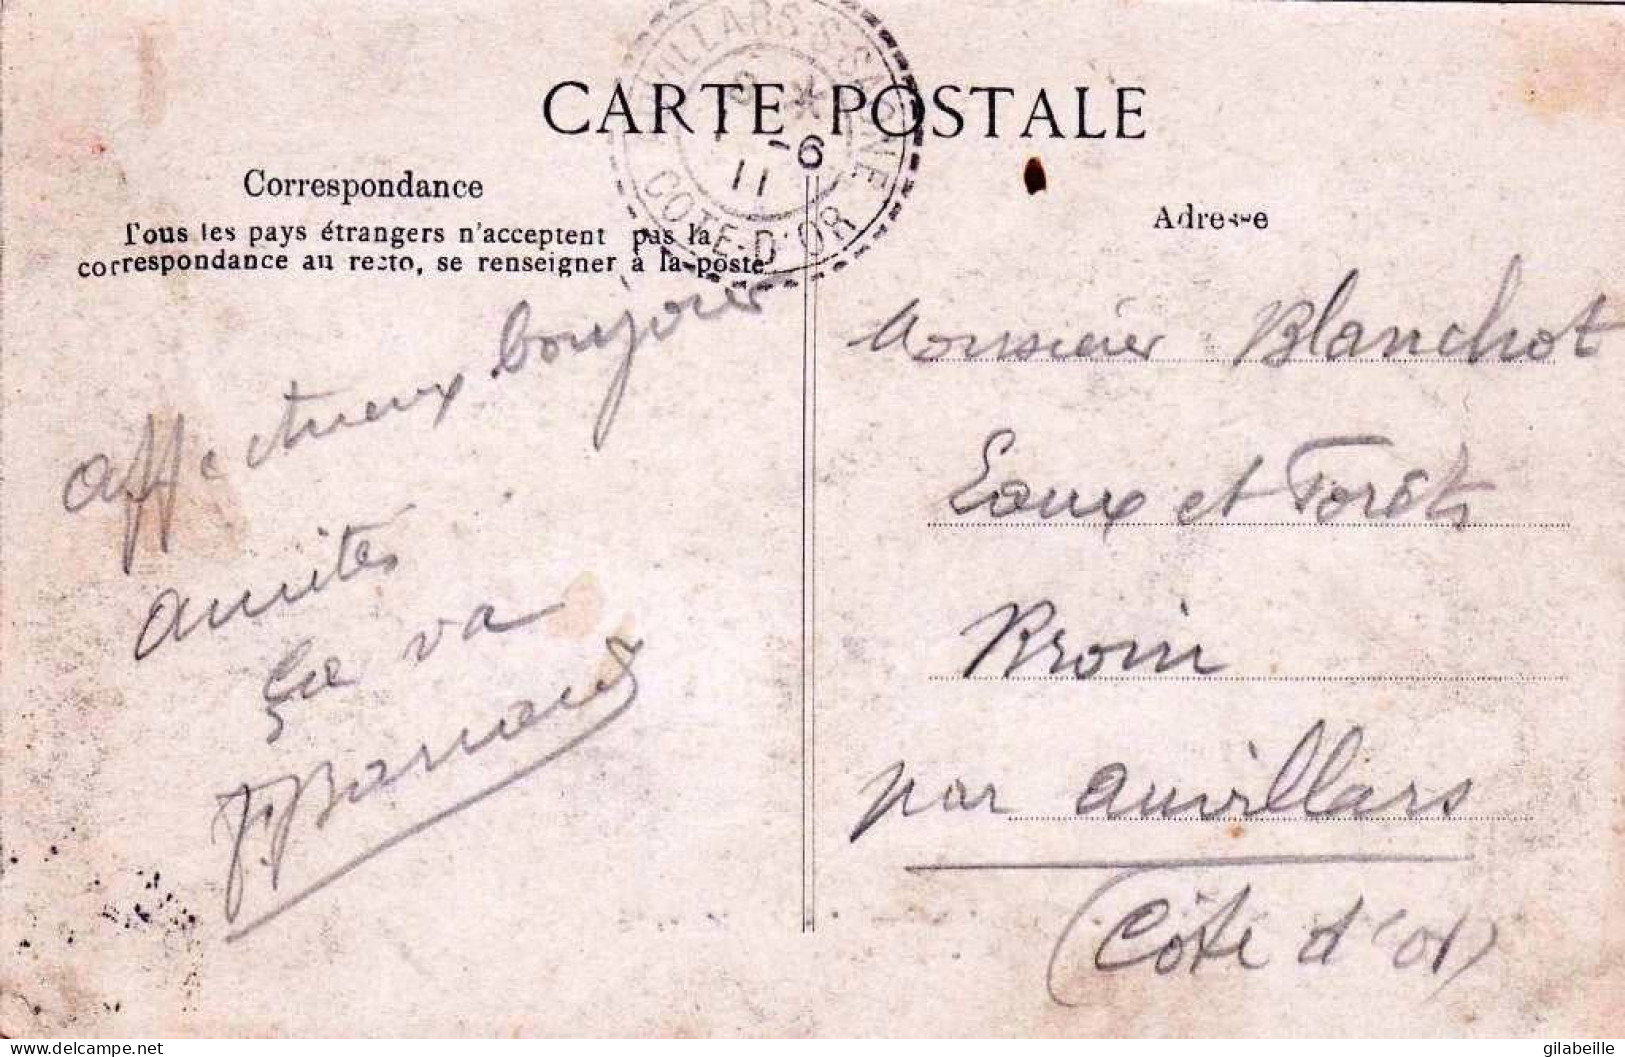 CARTE POSTALE
AUVILLARS-S-SAONE
9 *
-6
11
COTE-D'OR
Correspondance
Tous les pays étrangers n'acceptent pas la
correspondance au recto, se renseigner à la poste
Adresse
affectueux bonjour
amitiés
ça va
Monsieur Blanchot
Eaux et Forêts
Broin
par auvillars
(Côte d'or)
delcampe.net
gilabeille